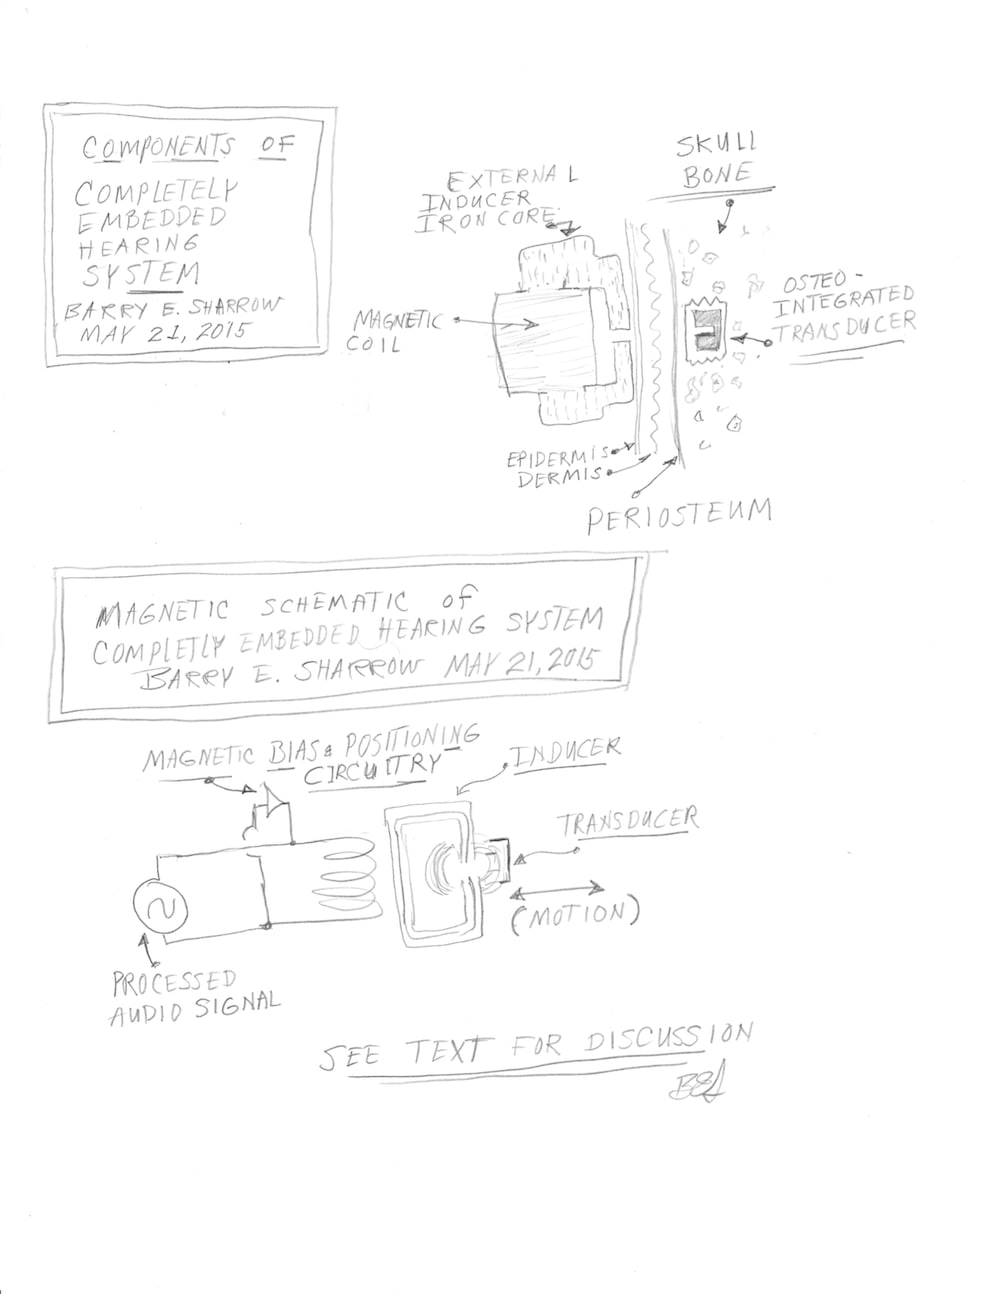 COMPONENTS OF
COMPLETELY
EMBEDDED
HEARING
SYSTEM
BARRY E. SHARROW
MAY 21, 2015
SKULL
BONE
EXTERNAL
INDUCER
IRON CORE
MAGNETIC
COIL
OSTEO-
INTEGRATED
TRANSDUCER
EPIDERMIS
DERMIS
PERIOSTEUM
MAGNETIC SCHEMATIC of
COMPLETLY EMBEDDED HEARING SYSTEM
BARRY E. SHARROW MAY 21, 2015
MAGNETIC BIAS & POSITIONING
CIRCUITRY
INDUCER
TRANSDUCER
(MOTION)
PROCESSED
AUDIO SIGNAL
SEE TEXT FOR DISCUSSION
BES